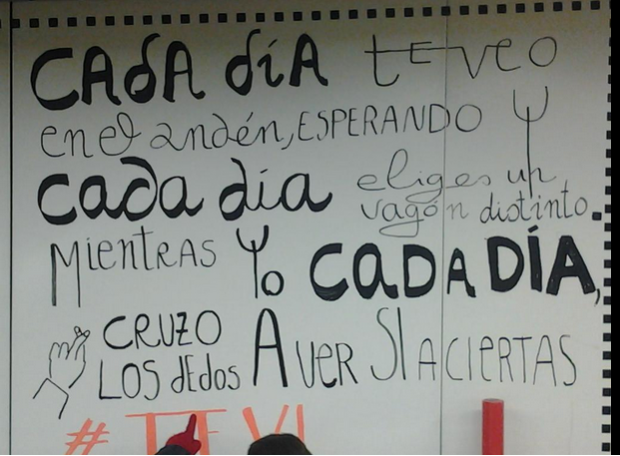 CADA DÍA TE VEO
en el andén, ESPERANDO Y
cada día eliges un
vagón distinto.
MIENTRAS Yo CADA DÍA,
CRUZO
LOS dEdos A VER SI ACIERTAS
# TEVI